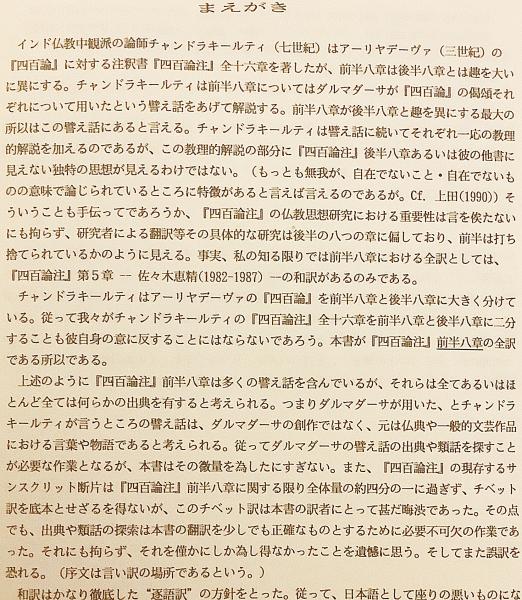 まえがき
インド仏教中観派の論師チャンドラキールティ（七世紀）はアーリヤデーヴァ（三世紀）の
『四百論』に対する注釈書『四百論注』全十六章を著したが、前半八章は後半八章とは趣を大い
に異にする。チャンドラキールティは前半八章についてはダルマダーサが『四百論』の偈頌それ
ぞれについて用いたという譬え話をあげて解説する。前半八章が後半八章と趣を異にする最大の
所以はこの譬え話にあると言える。チャンドラキールティは譬え話に続いてそれぞれ一応の教理
的解説を加えるのであるが、この教理的解説の部分に『四百論注』後半八章あるいは彼の他書に
見えない独特の思想が見えるわけではない。（もっとも無我が、自在でないこと・自在でないも
のの意味で論じられているところに特徴があると言えば言えるのであるが。Cf. 上田(1990)）そ
ういうことも手伝ってであろうか、『四百論注』の仏教思想研究における重要性は言を俟たない
にも拘らず、研究者による翻訳等その具体的な研究は後半の八つの章に偏しており、前半は打ち
捨てられているかのように見える。事実、私の知る限りでは前半八章における全訳としては、
『四百論注』第５章 -- 佐々木恵精(1982-1987) --の和訳があるのみである。
チャンドラキールティはアーリヤデーヴァの『四百論』を前半八章と後半八章に大きく分けて
いる。従って我々がチャンドラキールティの『四百論注』全十六章を前半八章と後半八章に二分
することも彼自身の意に反することにはならないであろう。本書が『四百論注』前半八章の全訳
である所以である。
上述のように『四百論注』前半八章は多くの譬え話を含んでいるが、それらは全てあるいはほ
とんど全ては何らかの出典を有すると考えられる。つまりダルマダーサが用いた、とチャンドラ
キールティが言うところの譬え話は、ダルマダーサの創作ではなく、元は仏典や一般的文芸作品
における言葉や物語であると考えられる。従ってダルマダーサの譬え話の出典や類話を探すこと
が必要な作業となるが、本書はその微量を為したにすぎない。また、『四百論注』の現存するサ
ンスクリット断片は『四百論注』前半八章に関する限り全体量の約四分の一に過ぎず、チベット
訳を底本とせざるを得ないが、このチベット訳は本書の訳者にとって甚だ晦渋であった。その点
でも、出典や類話の探索は本書の翻訳を少しでも正確なものとするために必要不可欠の作業であ
った。それにも拘らず、それを僅かにしか為し得なかったことを遺憾に思う。そしてまた誤訳を
恐れる。（序文は言い訳の場所であるという。）
和訳はかなり徹底した“逐語訳”の方針をとった。従って、日本語として座りの悪いものにな